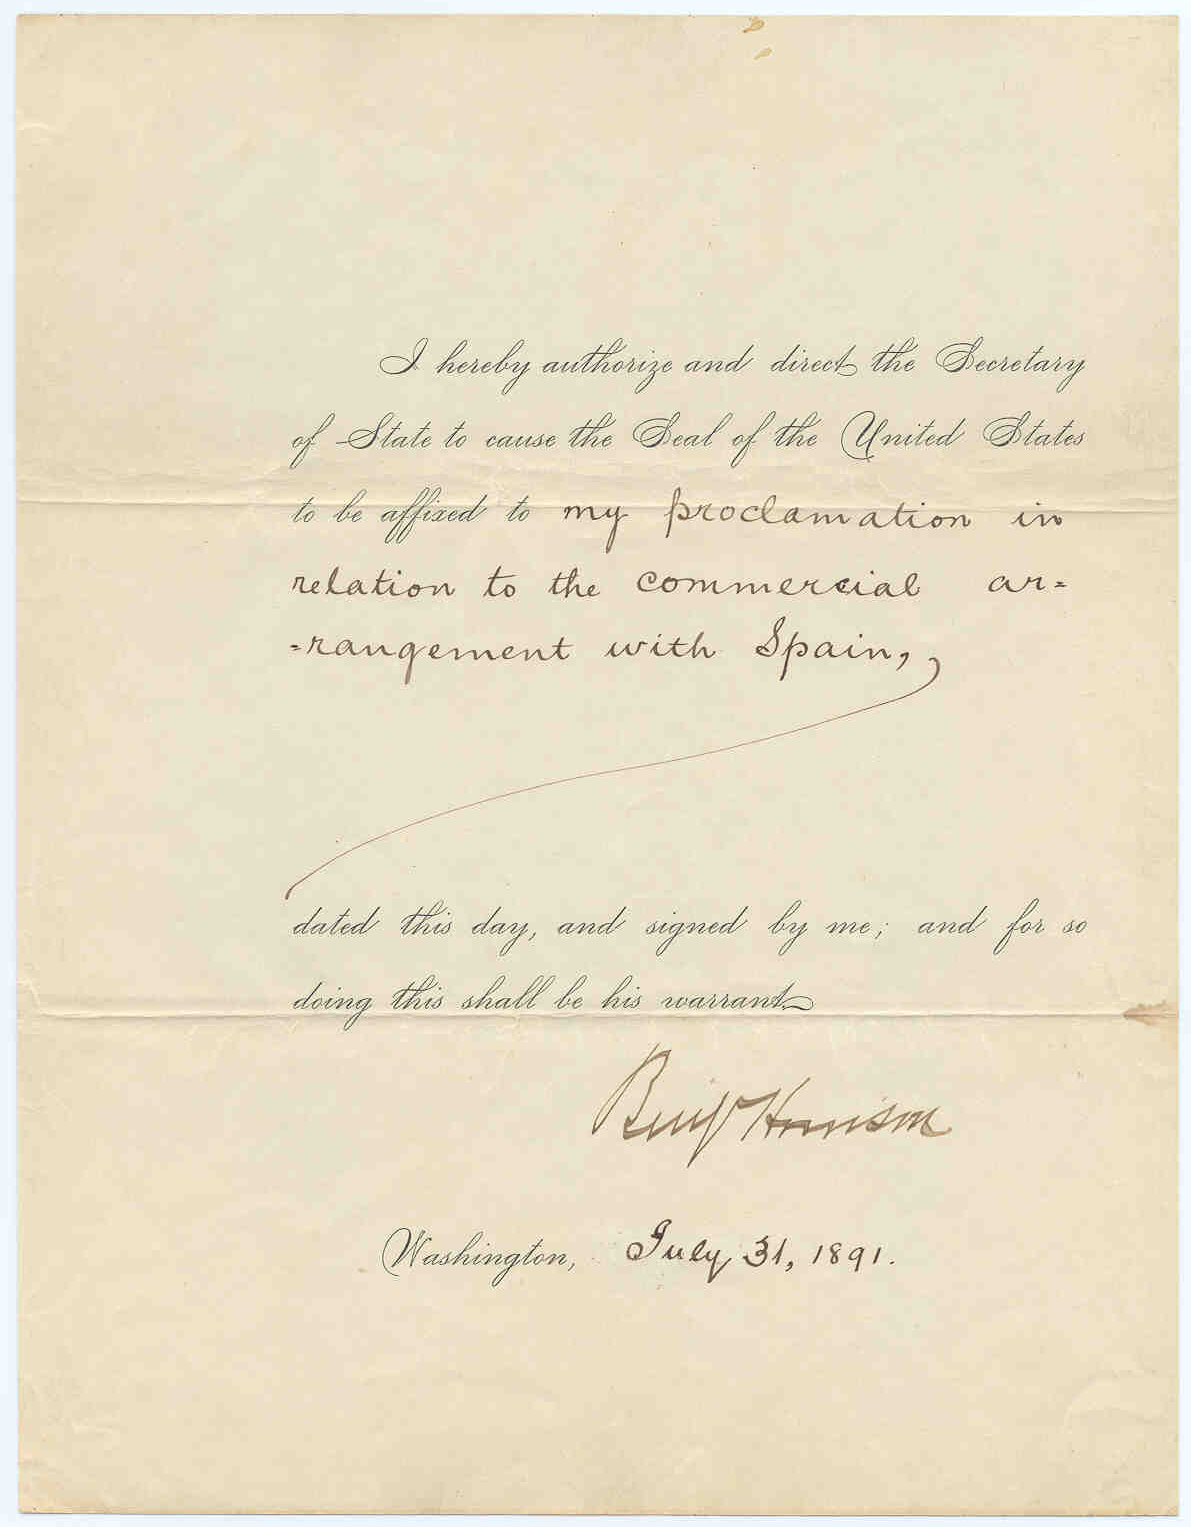 I hereby authorize and direct the Secretary
of State to cause the Seal of the United States
to be affixed to my proclamation in
relation to the commercial ar=
=rangement with Spain,
dated this day, and signed by me; and for so
doing this shall be his warrant.
Benj Harrison
Washington, July 31, 1891.